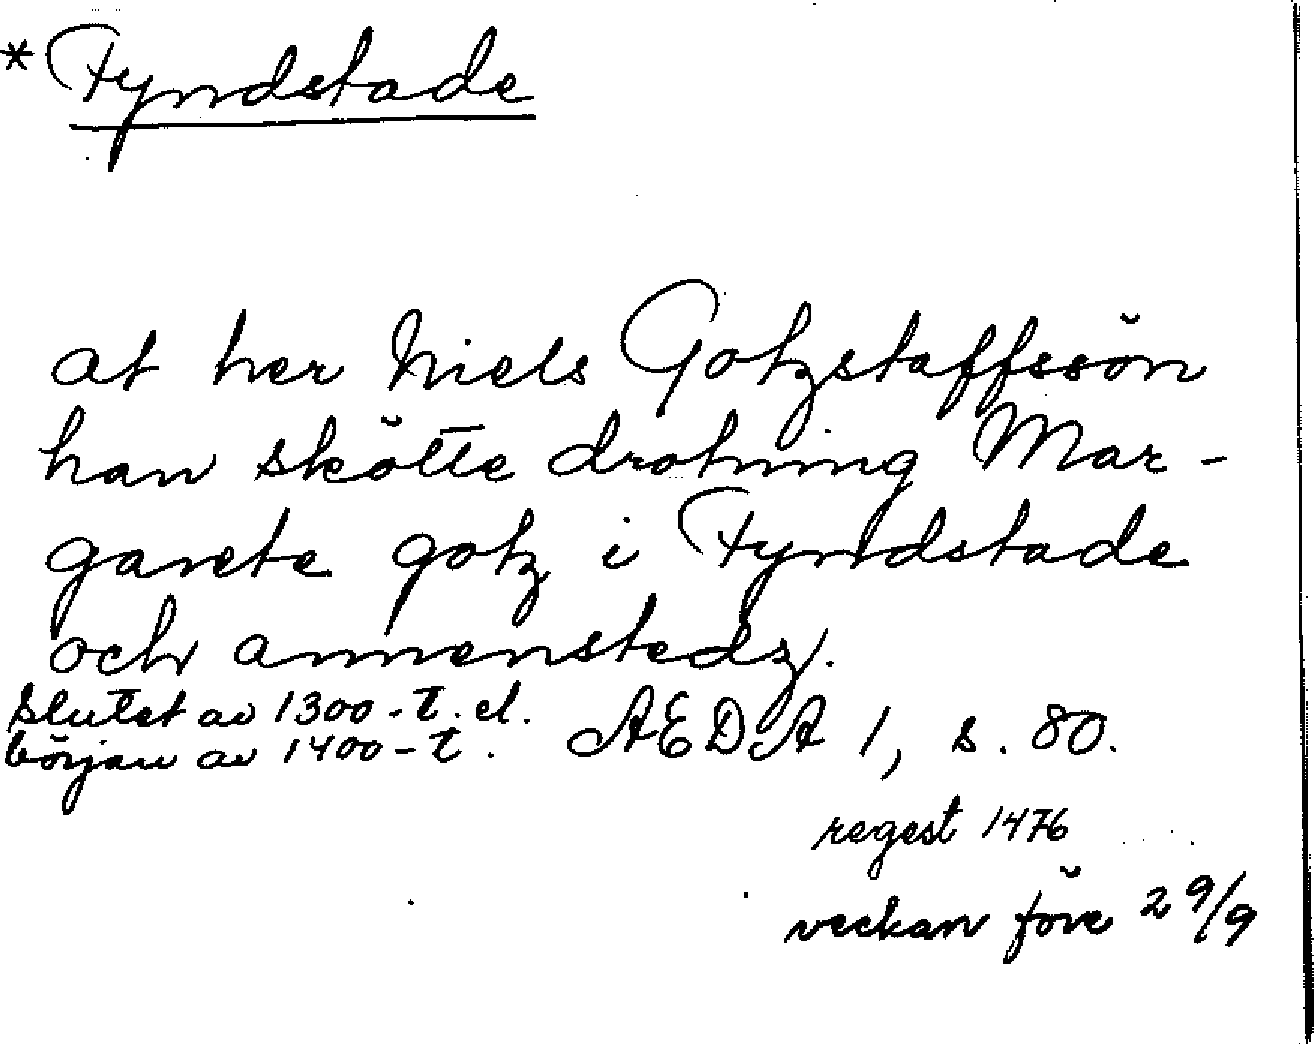 * Fyndstade
at her Niels Gotzstaffssön
han skötte drotning Mar-
garete gotz i Fyndstade
och annenstedz.
Slutet av 1300-t. el.
början av 1400-t.
AEDA 1, s. 80.
regest 1476
veckan före 29/9